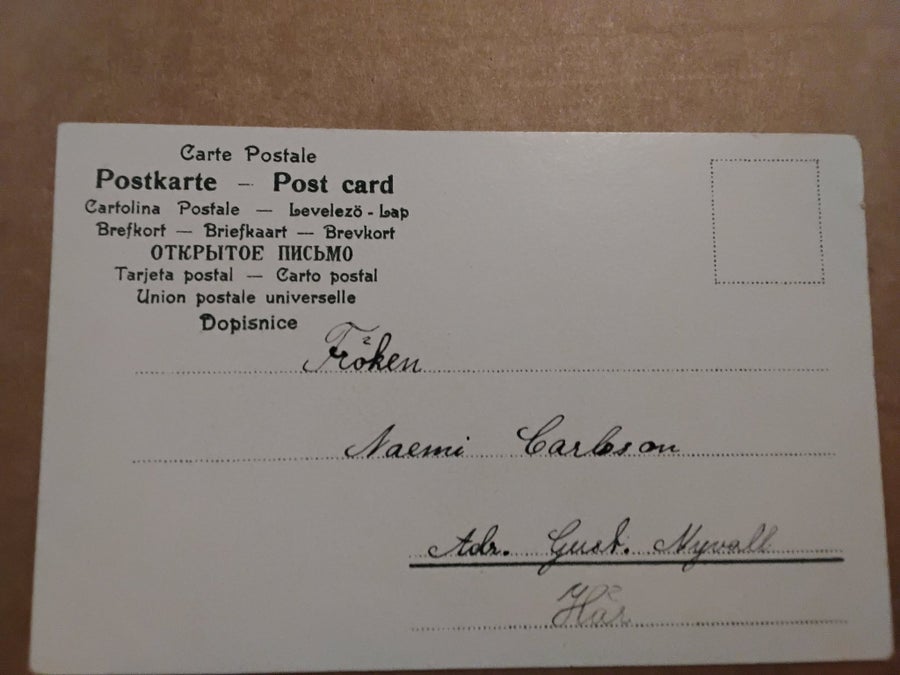 Carte Postale
Postkarte — Post card
Cartolina Postale — Levelezö-Lap
Brefkort — Briefkaart — Brevkort
ОТКРЫТОЕ ПИСЬМО
Tarjeta postal — Carto postal
Union postale universelle
Dopisnice
Fröken
Naemi Carlsson
Adr. Gust. Nyvall
Här